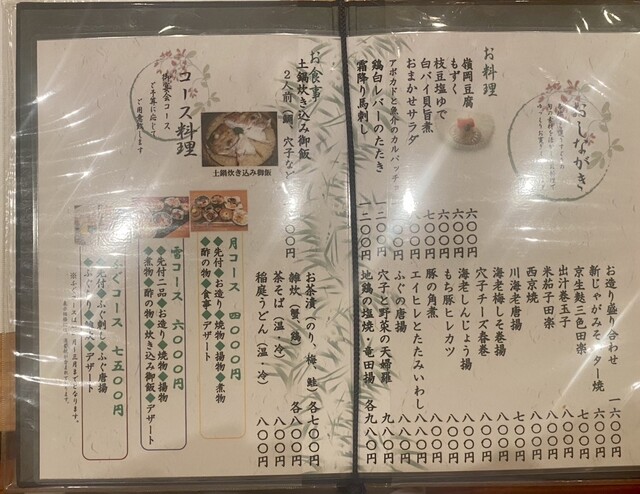 おしながき
お料理
嶺岡豆腐 六〇〇円
もずく 六〇〇円
枝豆塩ゆで 六〇〇円
白バイ貝旨煮 七〇〇円
おまかせサラダ 八〇〇円
鶏白レバーのたたき
霜降り馬刺し 一二〇〇円
お造り盛り合わせ 一六〇〇円
新じゃがみそバター焼 六〇〇円
京生麩三色田楽
出汁巻玉子 八〇〇円
米茄子田楽
西京焼 八〇〇円
川海老唐揚
海老梅しそ巻揚
穴子チーズ春巻 八〇〇円
海老しんじょう揚 八〇〇円
もち豚ヒレカツ 八〇〇円
豚の角煮 八〇〇円
エイヒレとたたみいわし 八〇〇円
ふぐの唐揚
穴子と野菜の天婦羅
地鶏の塩焼・竜田揚 各九八〇円
お食事
土鍋炊き込み御飯
2人前 (鯛、穴子など)
土鍋炊き込み御飯
お茶漬(のり、梅、鮭) 各七〇〇円
雑炊(蟹、鶏) 各八〇〇円
茶そば(温・冷) 八〇〇円
稲庭うどん(温・冷) 八〇〇円
コース料理
御宴会コース
ご予算に応じて
ご用意致します
月コース 四〇〇〇円
◆先付◆お造り◆焼物◆揚物◆煮物
◆酢の物◆食事◆デザート
雪コース 六〇〇〇円
◆先付二品◆お造り◆焼物◆揚物
◆煮物◆酢の物◆炊き込み御飯◆デザート
ふぐコース 七五〇〇円